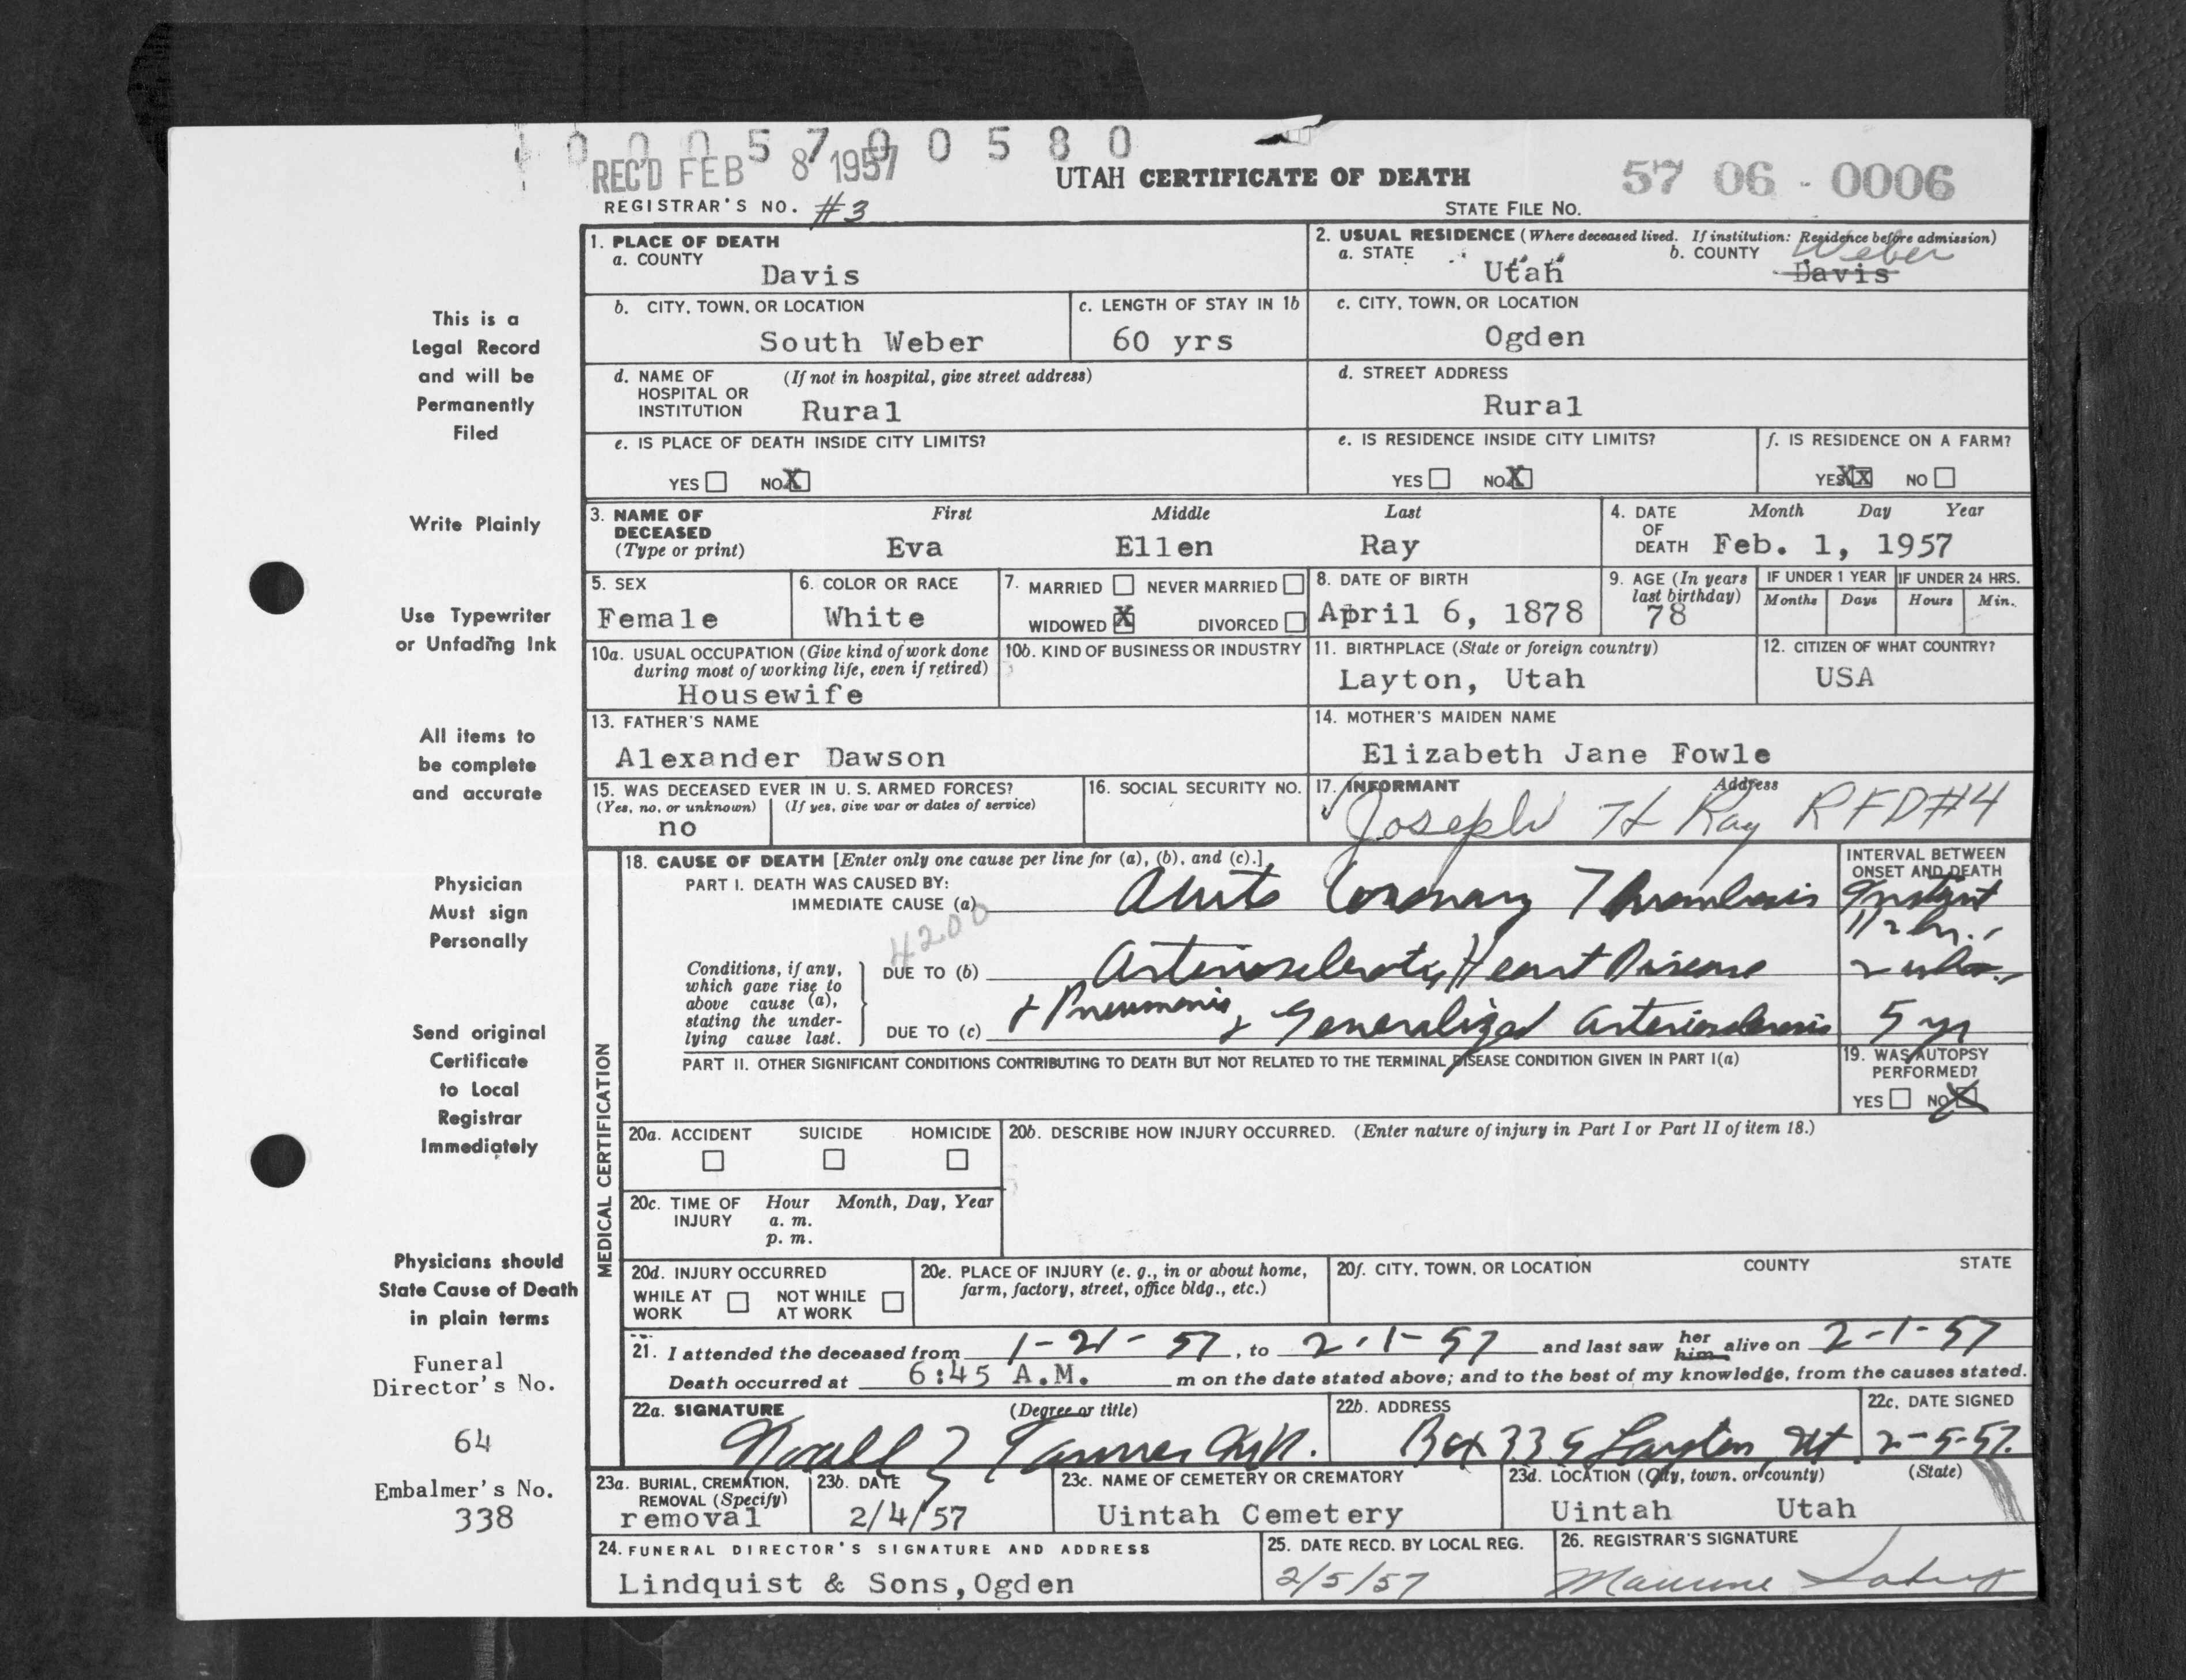 0 0 0 5 7 0 0 5 8 0
REC'D FEB 8 1957
UTAH CERTIFICATE OF DEATH
57 06 - 0006
REGISTRAR'S NO. #3
STATE FILE NO.
1. PLACE OF DEATH
a. COUNTY
Davis
2. USUAL RESIDENCE (Where deceased lived. If institution: Residence before admission)
a. STATE
Utah
b. COUNTY
Weber
Davis
b. CITY, TOWN, OR LOCATION
South Weber
c. LENGTH OF STAY IN 1b
60 yrs
c. CITY, TOWN, OR LOCATION
Ogden
d. NAME OF HOSPITAL OR INSTITUTION
(If not in hospital, give street address)
Rural
d. STREET ADDRESS
Rural
e. IS PLACE OF DEATH INSIDE CITY LIMITS?
YES NO X
e. IS RESIDENCE INSIDE CITY LIMITS?
YES NO X
f. IS RESIDENCE ON A FARM?
YES XX NO
3. NAME OF DECEASED
(Type or print)
First Middle Last
Eva Ellen Ray
4. DATE OF DEATH
Month Day Year
Feb. 1, 1957
5. SEX
Female
6. COLOR OR RACE
White
7. MARRIED NEVER MARRIED
WIDOWED X DIVORCED
8. DATE OF BIRTH
April 6, 1878
9. AGE (In years last birthday)
78
IF UNDER 1 YEAR
Months Days
IF UNDER 24 HRS.
Hours Min.
10a. USUAL OCCUPATION (Give kind of work done
during most of working life, even if retired)
Housewife
10b. KIND OF BUSINESS OR INDUSTRY
11. BIRTHPLACE (State or foreign country)
Layton, Utah
12. CITIZEN OF WHAT COUNTRY?
USA
13. FATHER'S NAME
Alexander Dawson
14. MOTHER'S MAIDEN NAME
Elizabeth Jane Fowle
15. WAS DECEASED EVER IN U. S. ARMED FORCES?
(Yes, no, or unknown) (If yes, give war or dates of service)
no
16. SOCIAL SECURITY NO.
17. INFORMANT Address
Joseph H Ray RFD#4
MEDICAL CERTIFICATION
18. CAUSE OF DEATH [Enter only one cause per line for (a), (b), and (c).]
PART I. DEATH WAS CAUSED BY:
IMMEDIATE CAUSE (a) Acute Coronary Thrombosis
4200
INTERVAL BETWEEN
ONSET AND DEATH
Instant
Conditions, if any,
which gave rise to
above cause (a),
stating the under-
lying cause last.
DUE TO (b) Arteriosclerotic Heart Disease
2 wks.
DUE TO (c) + Pneumonia, + Generalized Arteriosclerosis
5 yr
PART II. OTHER SIGNIFICANT CONDITIONS CONTRIBUTING TO DEATH BUT NOT RELATED TO THE TERMINAL DISEASE CONDITION GIVEN IN PART I(a)
19. WAS AUTOPSY
PERFORMED?
YES NO X
20a. ACCIDENT SUICIDE HOMICIDE
20b. DESCRIBE HOW INJURY OCCURRED. (Enter nature of injury in Part I or Part II of item 18.)
20c. TIME OF INJURY
Hour Month, Day, Year
a. m.
p. m.
20d. INJURY OCCURRED
WHILE AT WORK
NOT WHILE AT WORK
20e. PLACE OF INJURY (e. g., in or about home,
farm, factory, street, office bldg., etc.)
20f. CITY, TOWN, OR LOCATION COUNTY STATE
21. I attended the deceased from 1-21-57, to 2-1-57 and last saw her him alive on 2-1-57
Death occurred at 6:45 A.M. m on the date stated above; and to the best of my knowledge, from the causes stated.
22a. SIGNATURE (Degree or title)
Tanner M.D.
22b. ADDRESS
Box 335 Layton, Ut
22c. DATE SIGNED
2-5-57.
23a. BURIAL, CREMATION,
REMOVAL (Specify)
removal
23b. DATE
2/4/57
23c. NAME OF CEMETERY OR CREMATORY
Uintah Cemetery
23d. LOCATION (City, town, or county) (State)
Uintah Utah
24. FUNERAL DIRECTOR'S SIGNATURE AND ADDRESS
Lindquist & Sons, Ogden
25. DATE RECD. BY LOCAL REG.
2/5/57
26. REGISTRAR'S SIGNATURE
This is a
Legal Record
and will be
Permanently
Filed
Write Plainly
Use Typewriter
or Unfading Ink
All items to
be complete
and accurate
Physician
Must sign
Personally
Send original
Certificate
to Local
Registrar
Immediately
Physicians should
State Cause of Death
in plain terms
Funeral
Director's No.
64
Embalmer's No.
338